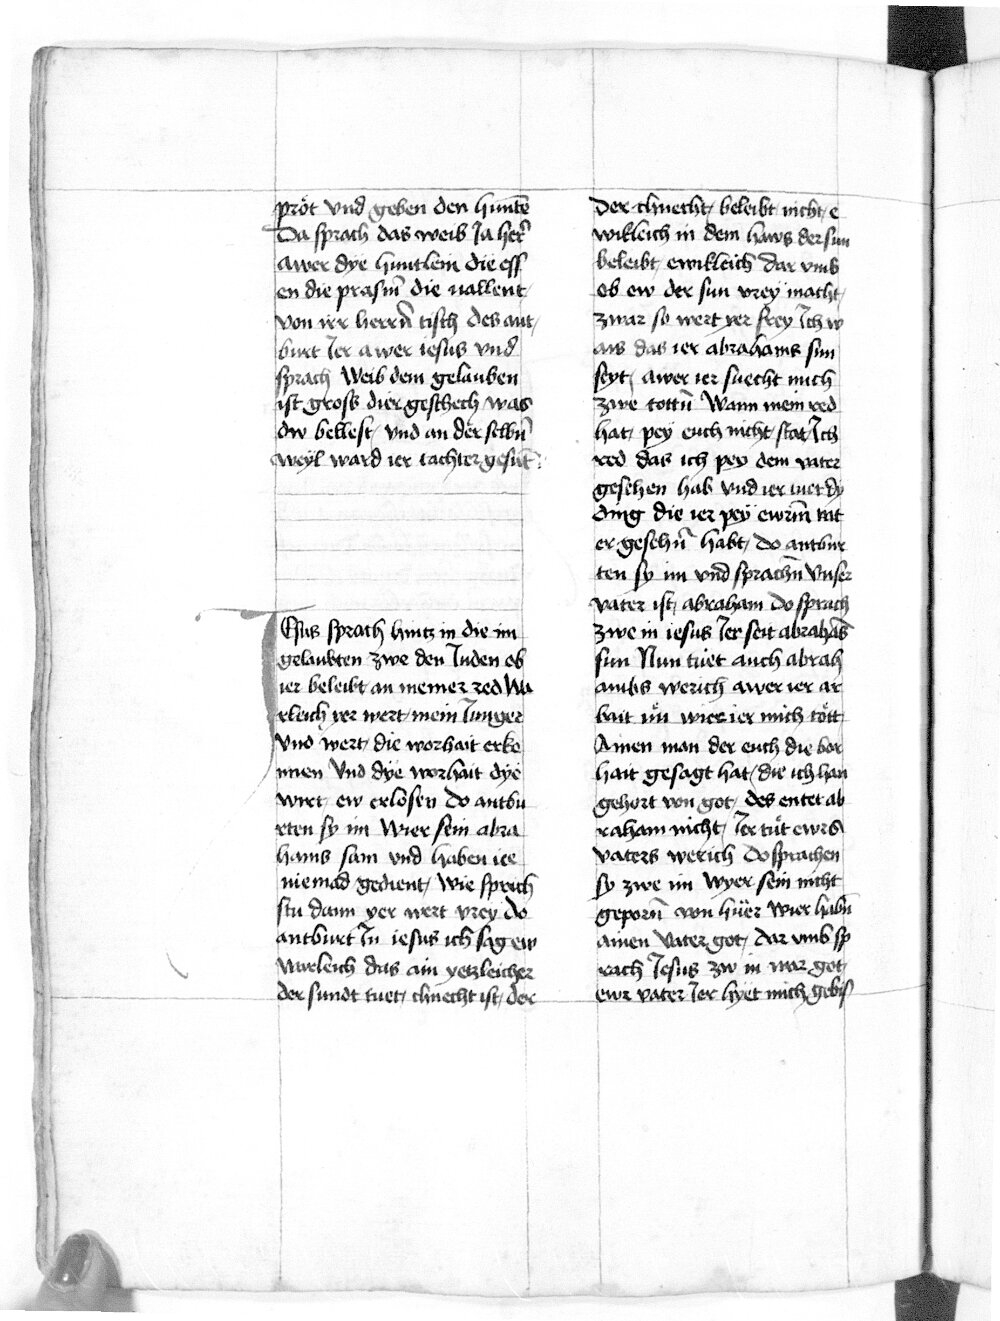 pröt vnd geben den hunte
Da sprach das weib Ja her
awer dye huntlein die ess
en die prasm̄ die uallent
von irr herrn̄ tisch des ant
burt Jer awer iesus vnd
sprach Weib dem gelauben
ist gross dier geschech was
dw bellest vnd an der selbn̄
weyl ward ier tachter gesūt
Esus sprach hintz in die im
gelaubten zwe den Juden ob
ier beleibt an meiner red Wa
rleich yer wert mein Junger
vnd wert die worhait erke
nnen Vnd dye worhait dye
wirt ew erlösen Do antbu
rten sy im Wier sein abra
hams sam vnd haben ier
niemad gedient Wie sprich
stu dann yer wert vrey do
antburt In iesus ich sag ew
Warleich das ain yetzleicher
der sundt tuet chnecht ist der
Der chnecht beleibt nicht e
wikleich in dem haws der sun
beleibt ewikleich Dar vmb
ob ew der sun vrey macht
zwar so wert yer frey Ich w
ais das ier abrahams sun
seyt awer ier suecht mich
zwe tottn̄ Wann mein red
hat pey euch nicht stat Ich
red das ich pey dem vater
gesehen hab vnd ier tuet dy
ding die ier pey ewrm̄ vat
er gesehn̄ habt do antbur
ten sy im vnd sprachn̄ Vnser
vater ist abraham do sprach
zwe in iesus Jer seit abrahās
sun Nun tuet auch abrah
ambs werich awer ier ar
bait nü wier ier mich tött
Ainen man der euch die bor
hait gesagt hat die ich han
gehort von got des entet ab
raham nicht Jer tüt ewrs
vaters werich Do sprachen
sy zwe im Wyer sein nicht
geporn̄ von hüer Wier habn̄
ainen Vater got Dar vmb sp
rach Jesus zw in wor got
ewr vater Jer hyet mich gebis